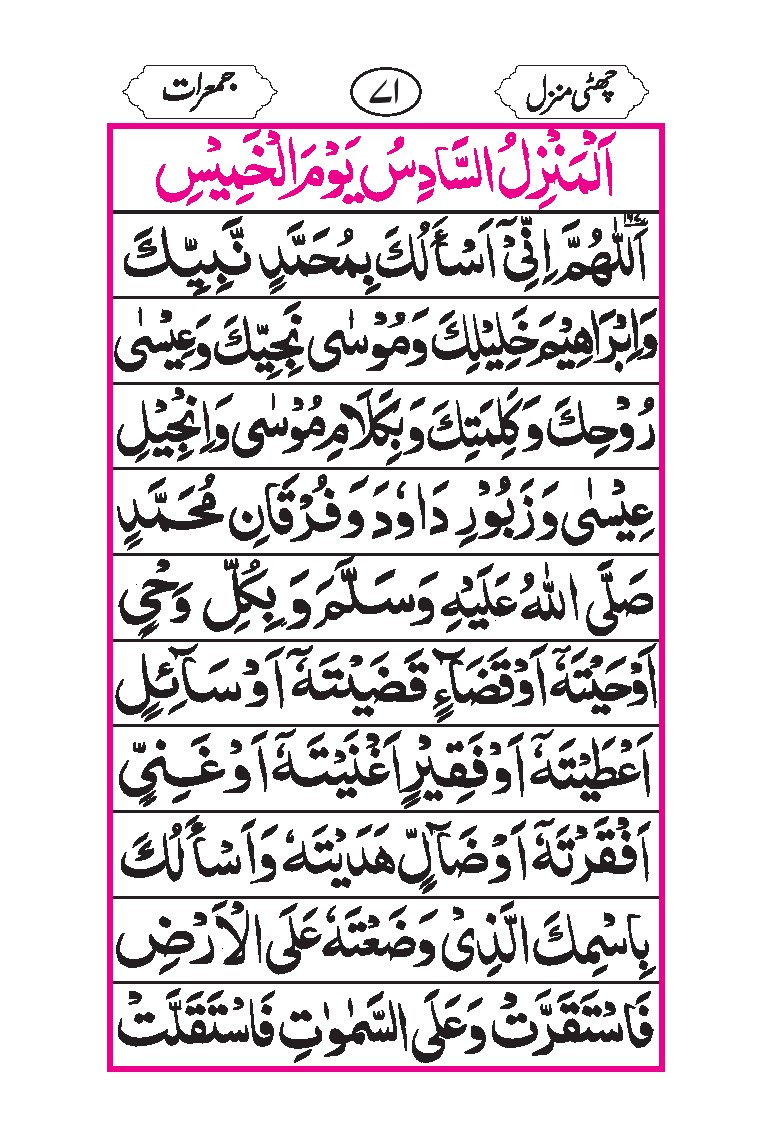 چھٹی منزل
۷۱
جمعرات
اَلْمَنْزِلُ السَّادِسُ یَوْمَ الْخَمِیْسِ
اَللّٰهُمَّ اِنِّیْۤ اَسْأَلُكَ بِمُحَمَّدٍ نَّبِیِّكَ
وَاِبْرَاهِیْمَ خَلِیْلِكَ وَمُوْسٰی نَجِیِّكَ وَعِیْسٰی
رُوْحِكَ وَكَلِمَتِكَ وَبِكَلَامِ مُوْسٰی وَاِنْجِیْلِ
عِیْسٰی وَزَبُوْرِ دَاوٗدَ وَفُرْقَانِ مُحَمَّدٍ
صَلَّی اللّٰهُ عَلَیْهِ وَسَلَّمَ وَبِكُلِّ وَحْیٍ
اَوْحَیْتَهٗۤ اَوْقَضَآءٍ قَضَیْتَهٗۤ اَوْ سَآئِلٍ
اَعْطَیْتَهٗۤ اَوْفَقِیْرٍ اَغْنَیْتَهٗۤ اَوْ غَنِیٍّ
اَفْقَرْتَهٗۤ اَوْضَآلٍّ هَدَیْتَهٗ وَاَسْأَلُكَ
بِاسْمِكَ الَّذِیْ وَضَعْتَهٗ عَلَی الْاَرْضِ
فَاسْتَقَرَّتْ وَعَلَی السَّمٰوٰتِ فَاسْتَقَلَّتْ